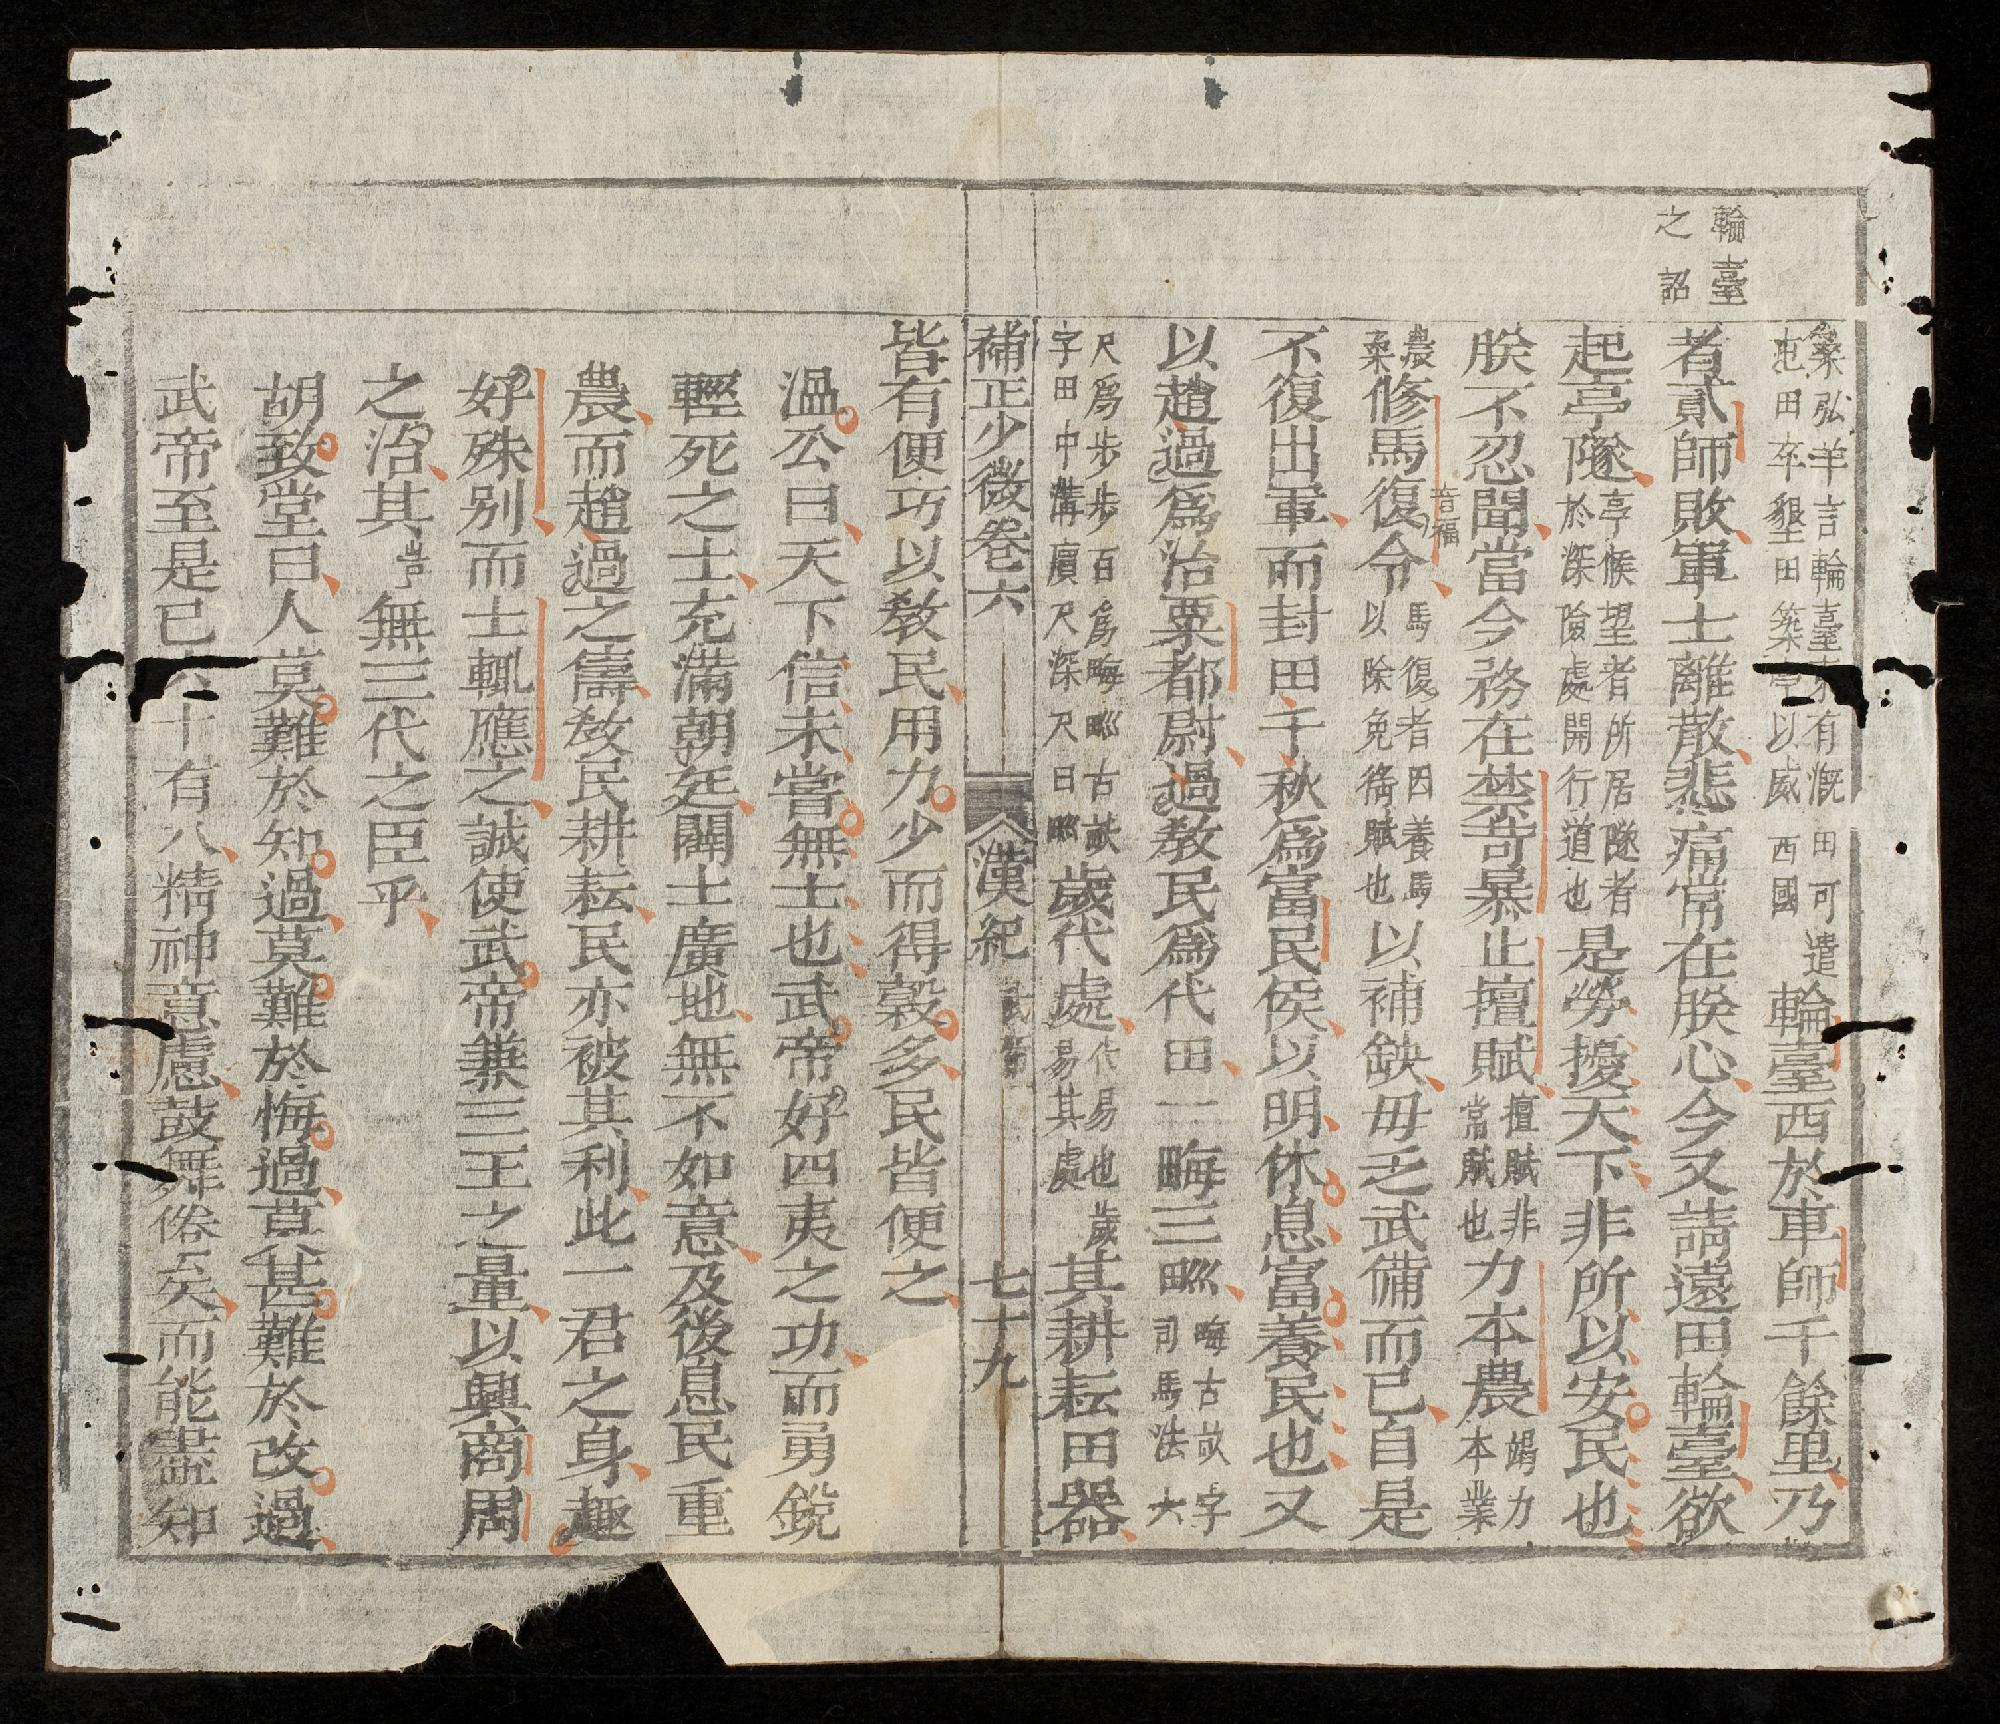 輪臺
之詔
桑弘羊言輪臺東有漑田可遣
屯田卒墾田築亭以威西國
輪臺西於車師千餘里乃
者貳師敗軍士離散悲痛常在朕心今又請遠田輪臺欲
起亭隧
亭候望者所居隧者
於深險處開行道也
是勞擾天下非所以安民也
朕不忍聞當今務在禁苛暴止擅賦
擅賦非
常賦也
力本農
竭力
本業
農
桑
修馬復
音福
令
馬復者因養馬
以除免徭賦也
以補缺毋乏武備而已自是
不復出軍而封田千秋爲富民侯以明休息富養民也又
以趙過爲治粟都尉過敎民爲代田一畮三甽
畮古畝字
司馬法六
尺爲步步百爲畮甽古畝
字田中溝廣尺深尺曰甽
歲代處
代易也歲
易其處
其耕耘田器
補正少微卷六
漢紀
武帝
七十九
皆有便巧以敎民用力少而得穀多民皆便之
溫公曰天下信未嘗無士也武帝好四夷之功而勇銳
輕死之士充滿朝廷闢土廣地無不如意及後息民重
農而趙過之儔敎民耕耘民亦被其利此一君之身趣
好殊別而士輒應之誠使武帝兼三王之量以興商周
之治其
無三代之臣乎
胡致堂曰人莫難於知過莫難於悔過莫甚難於改過
武帝至是已六十有八精神意慮鼓舞倦矣而能盡知